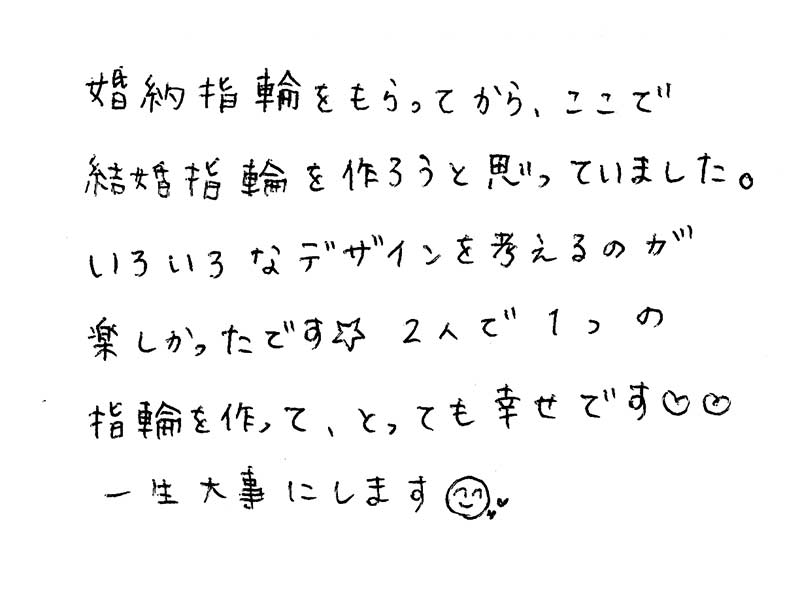 婚約指輪をもらってから、ここで
結婚指輪を作ろうと思っていました。
いろいろなデザインを考えるのが
楽しかったです☆ 2人で1つの
指輪を作って、とっても幸せです♡♡
一生大事にします